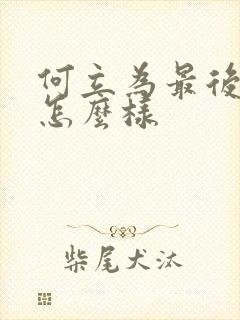 何立為最後
怎麼樣
柴尾犬汰